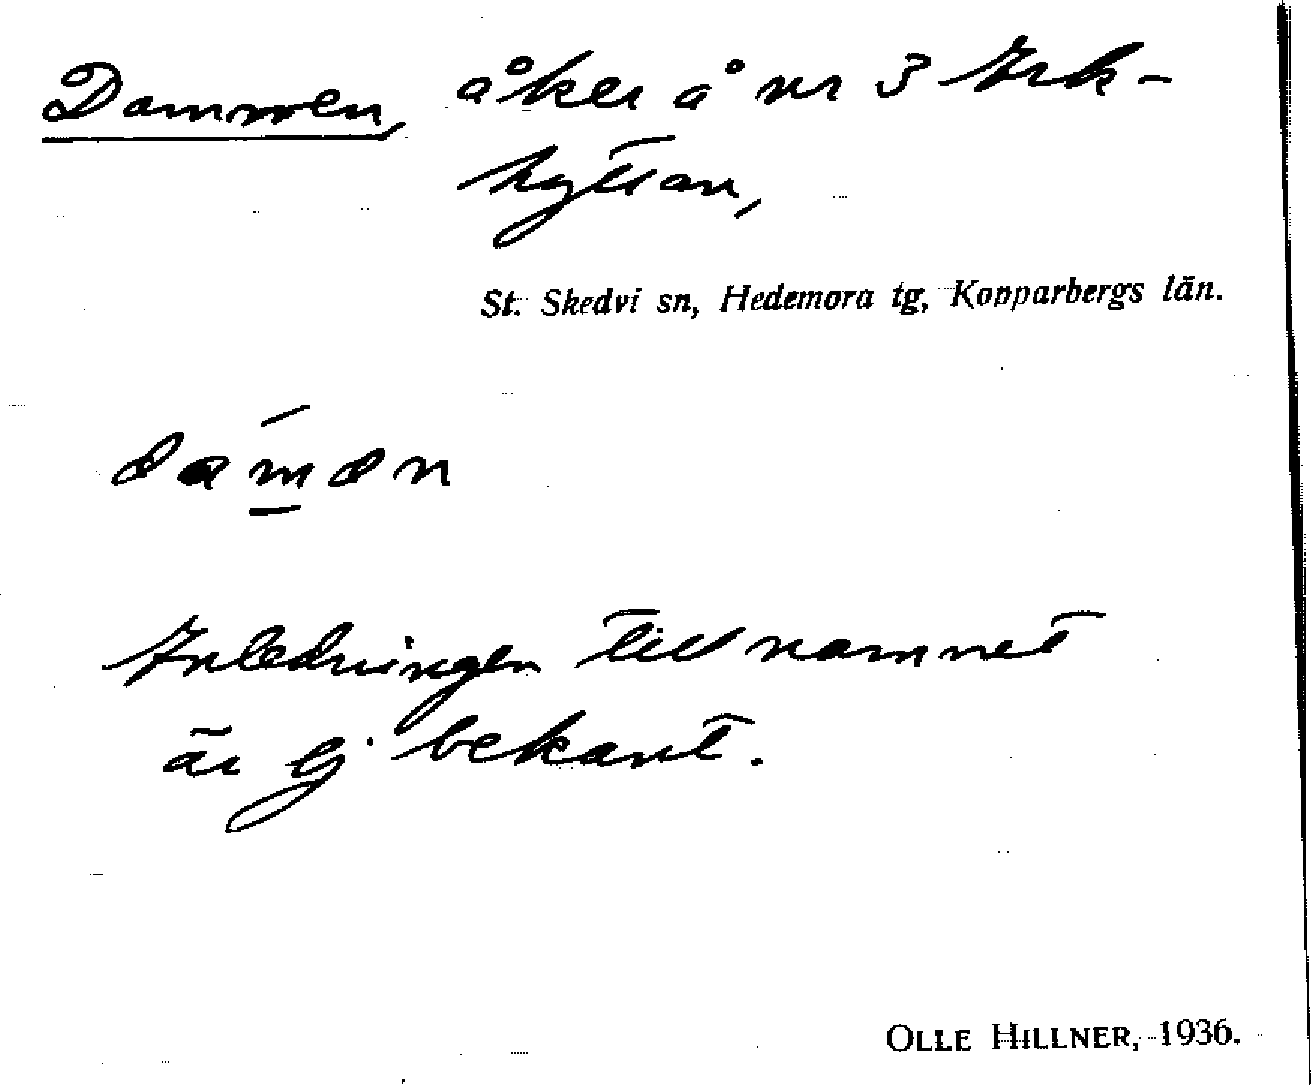 Dammen, åker å nr 3 Irk-
hyttan,
St. Skedvi sn, Hedemora tg, Kopparbergs län.
damən
Inledningen till namnet
är ej bekant.
OLLE HILLNER, 1936.